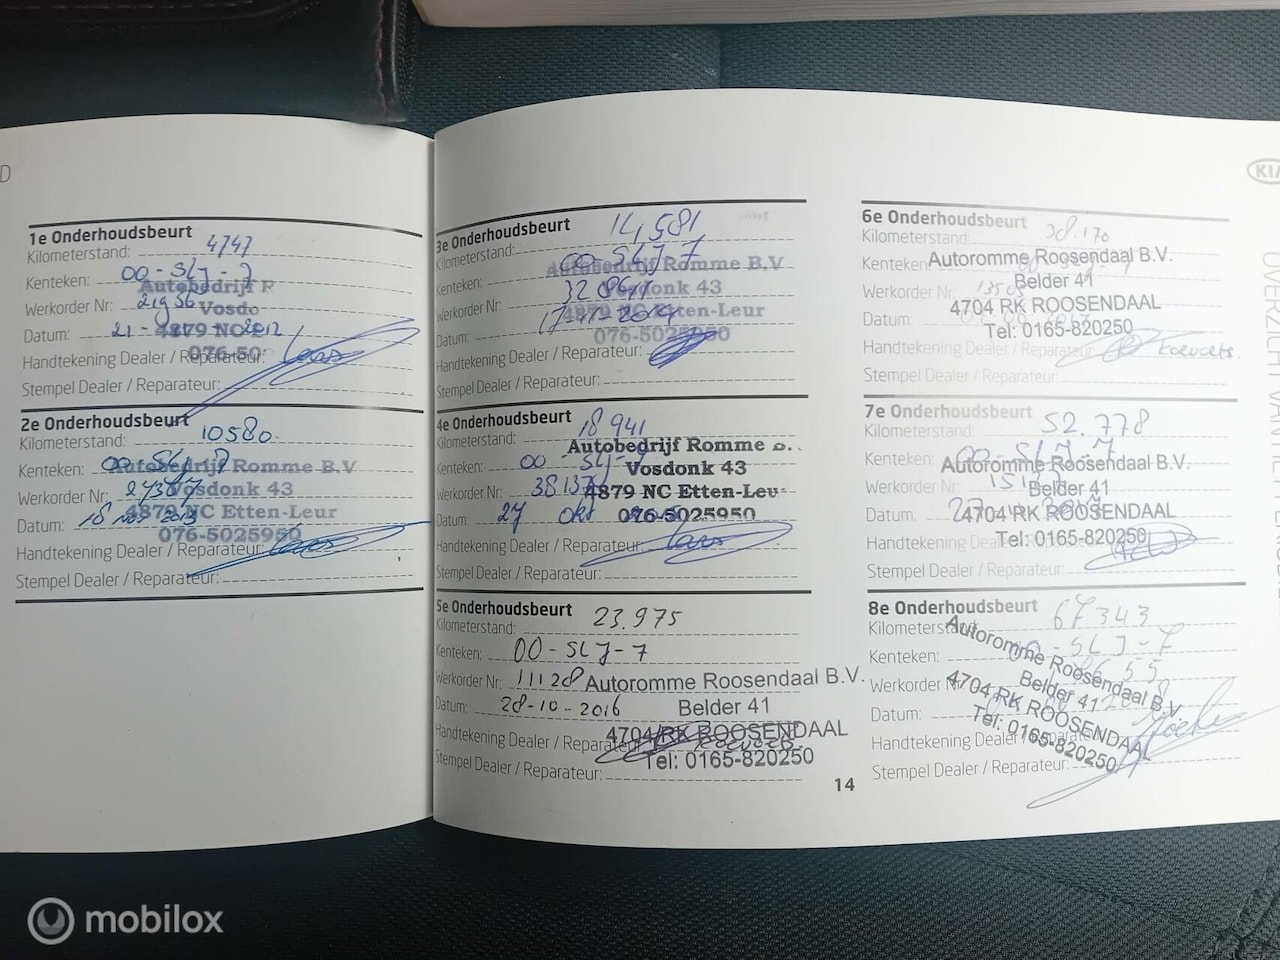 D
1e Onderhoudsbeurt
Kilometerstand: 4747
Kenteken: 00-SLJ-7
Autobedrijf R
Werkorder Nr: 21956
Vosdo
Datum: 21- -2012
4879 NC
Handtekening Dealer / Reparateur:
076-50
Stempel Dealer / Reparateur:
2e Onderhoudsbeurt
Kilometerstand: 10580
Kenteken: 00-SLJ-7
Autobedrijf Romme B.V
Werkorder Nr: 27367
Vosdonk 43
Datum: 18 nov 2013
4879 NC Etten-Leur
076-5025950
Handtekening Dealer / Reparateur:
Stempel Dealer / Reparateur:
3e Onderhoudsbeurt
Kilometerstand: 14,581
Kenteken: 00-SLJ-7
Autobedrijf Romme B.V
Werkorder Nr:
Vosdonk 43
Datum: 17-11-2014
4879 NC Etten-Leur
076-5025950
Handtekening Dealer / Reparateur:
Stempel Dealer / Reparateur:
4e Onderhoudsbeurt
Kilometerstand: 18941
Autobedrijf Romme B.
Kenteken: 00-SLJ-7
Vosdonk 43
Werkorder Nr:
4879 NC Etten-Leu
Datum: 27 okt
076-5025950
Handtekening Dealer / Reparateur:
Stempel Dealer / Reparateur:
5e Onderhoudsbeurt
Kilometerstand: 23.975
Kenteken: 00-SLJ-7
Werkorder Nr: 11128
Autoromme Roosendaal B.V.
Datum: 28-10-2016
Belder 41
4704 RK ROOSENDAAL
Handtekening Dealer / Reparateur:
Tel: 0165-820250
Stempel Dealer / Reparateur:
14
6e Onderhoudsbeurt
Kilometerstand: 38.170
Autoromme Roosendaal B.V.
Kenteken:
Belder 41
Werkorder Nr:
4704 RK ROOSENDAAL
Datum:
Tel: 0165-820250
Handtekening Dealer / Reparateur:
Stempel Dealer / Reparateur:
7e Onderhoudsbeurt
Kilometerstand: 52.778
Kenteken: 00-SLJ-7
Autoromme Roosendaal B.V.
Werkorder Nr:
Belder 41
Datum:
4704 RK ROOSENDAAL
Tel: 0165-820250
Handtekening Dealer / Reparateur:
Stempel Dealer / Reparateur:
8e Onderhoudsbeurt
Kilometerstand: 67343
Autoromme Roosendaal B.V.
Kenteken: 00-SLJ-7
Belder 41
Werkorder Nr:
4704 RK ROOSENDAAL
Datum:
Tel: 0165-820250
Handtekening Dealer / Reparateur:
Stempel Dealer / Reparateur:
KIA
mobilox